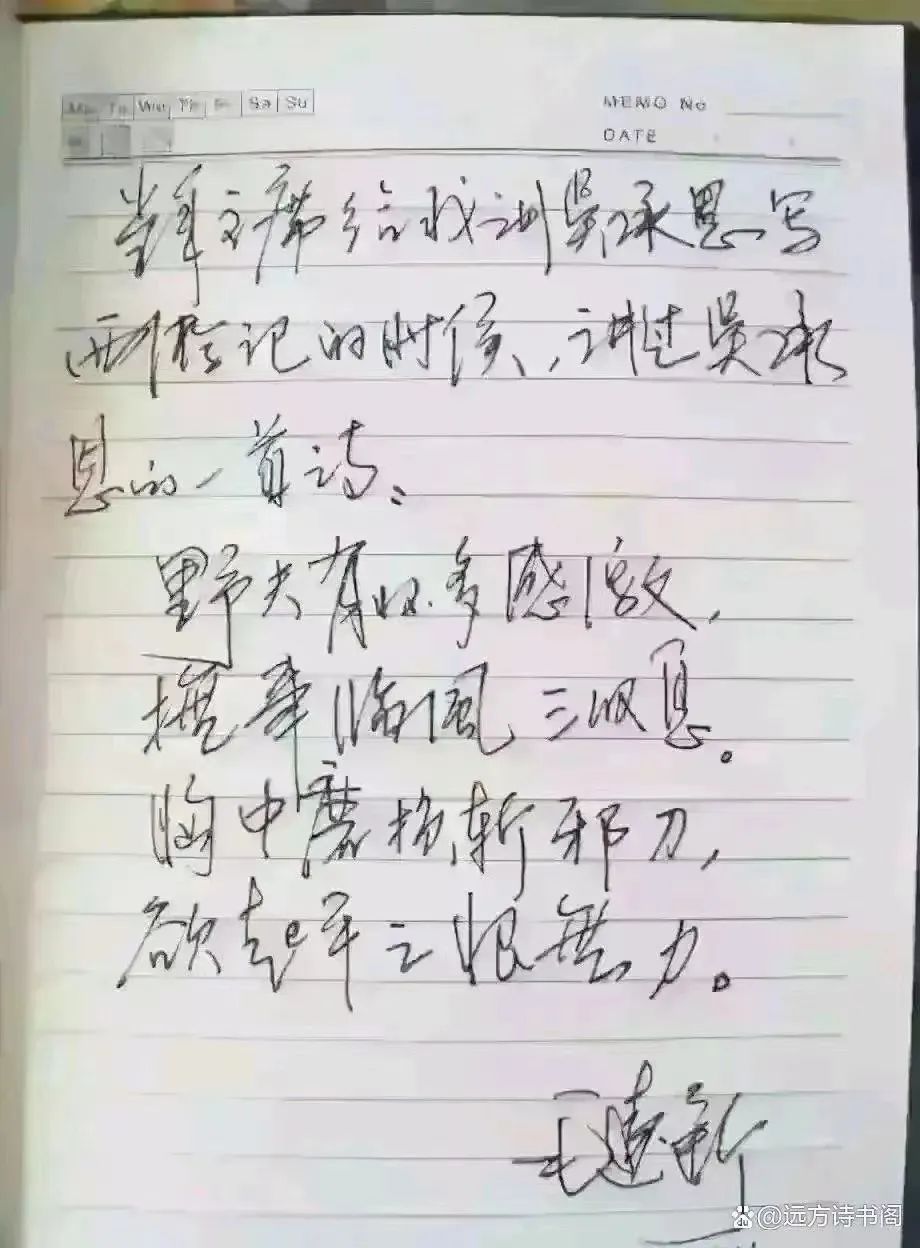 Mo Tu Wed Th Fr Sa Su
MEMO No
DATE
当年主席给我讲吳承恩写
西游记的时候，讲过吳承
恩的一首诗：
野夫有怀多感激，
撫事临風三叹息。
胸中磨损斩邪刀，
欲起平之恨無力。
毛遠新
@远方诗书阁